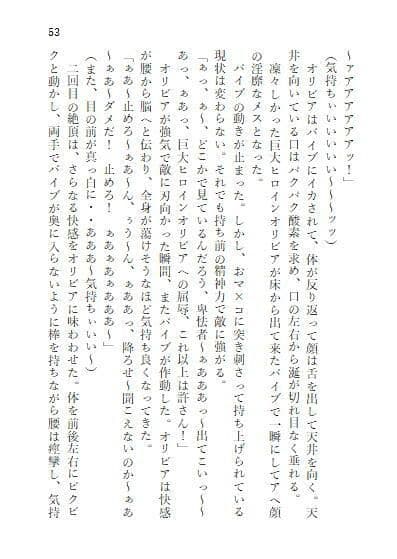 53
～ァアアアアアッ！」
（気持ちぃいいいい～～～ッッ）
　オリビアはバイブにイカされて、体が反り返って顔は舌を出して天井を向く。天
井を向いている口はパクパク酸素を求め、口の左右から涎が切れ目なく垂れる。
　凛々しかった巨大ヒロインオリビアが床から出て来たバイブで一瞬にしてアヘ顔
の淫靡なメスとなった。
　バイブの動きが止まった。しかし、おマ×コに突き刺さって持ち上げられている
現状は変わらない。それでも持ち前の精神力で敵に強がる。
「ぁっ、ぁ～、どこかで見ているんだろう、卑怯者～ぁああっ～出てこいっ～～
あっ、ぁあっ、巨大ヒロインオリビアへの屈辱、これ以上は許さん！」
　オリビアが強気で敵に刃向かった瞬間、またバイブが作動した。オリビアは快感
が腰から脳へと伝わり、全身が蕩けそうなほど気持ち良くなってきた。
「ぁぁ～止めろ～ぁあ～ん、ぅう～ん、ぁああっ、降ろせ～聞こえないのか～ぁあ
～ぁあ～ダメだ！　止めろ！　ぁあぁぁあああ～」
（また、目の前が真っ白に・・あああ～気持ちぃいい～）
　二回目の絶頂は、さらなる快感をオリビアに味わわせた。体を前後左右にビクビ
クと動かし、両手でバイブが奥に入らないように棒を持ちながら腰は痙攣し、気持